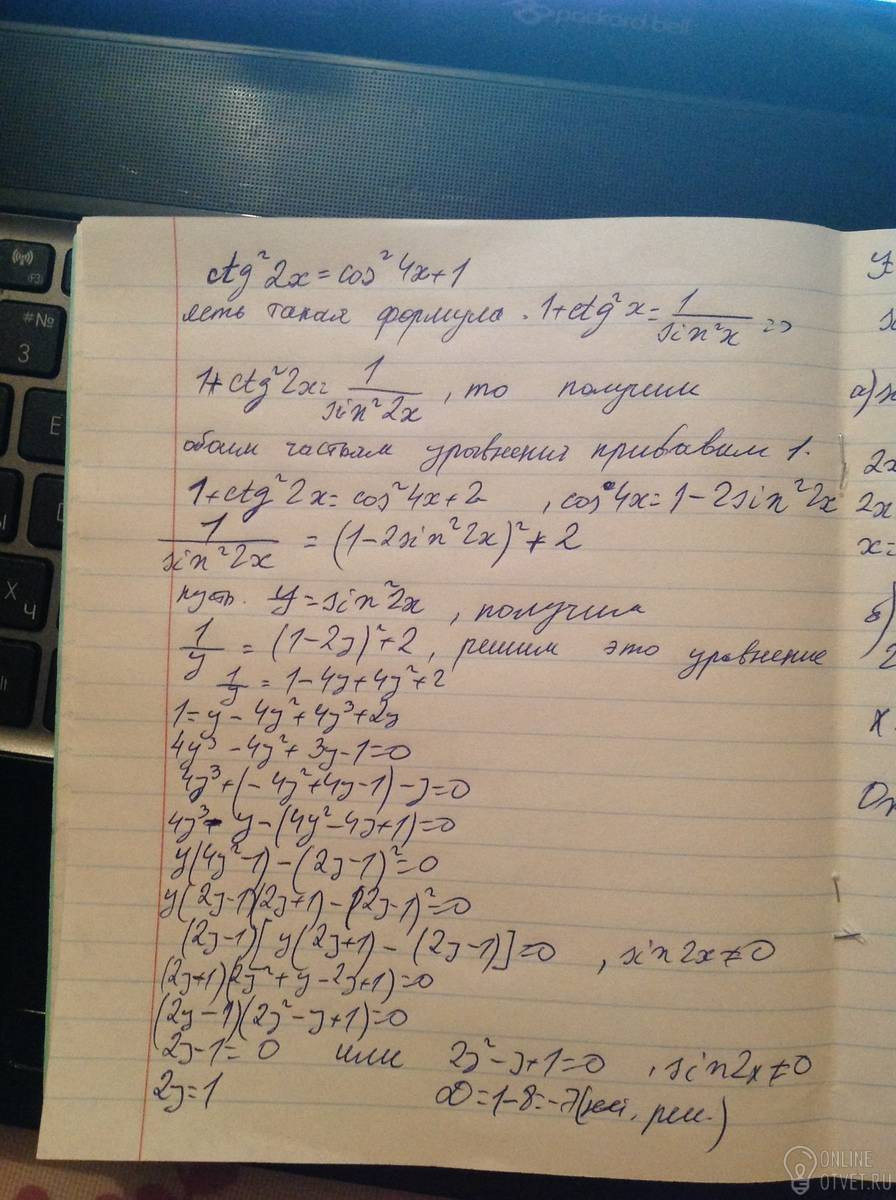 packard bell
F3
#№
3
Ё
Х
Ч
Ы
ctg²2x = cos²4x+1
есть такая формула . 1+ctg²x = 1/sin²x =>
1+ctg²2x = 1/sin²2x , то получим
обоим частьям уравнения прибавим 1.
1+ctg²2x = cos²4x+2 , cos4x = 1-2sin²2x
1/sin²2x = (1-2sin²2x)²+2
пусть. y = sin²2x , получим
1/y = (1-2y)²+2 , решим это уравнение
1/y = 1-4y+4y²+2
1=y-4y²+4y³+2y
4y³-4y²+3y-1=0
4y³+(-4y²+4y-1)-y=0
4y³-y-(4y²-4y+1)=0
y(4y²-1)-(2y-1)²=0
y(2y-1)(2y+1)-(2y-1)²=0
(2y-1)[y(2y+1)-(2y-1)]=0 , sin2x≠0
(2y+1)(2y²+y-2y+1)=0
(2y-1)(2y²-y+1)=0
2y-1=0 или 2y²-y+1=0 , sin2x≠0
2y=1 D=1-8=-7(нет. реш.)
а)
2x
2x
x=
б)
2
x
От
ONLINE
OTVET.RU